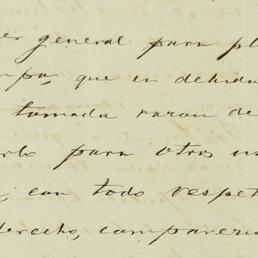 er general para pl
mpa, que en debida
tomada razon de
rlo para otros us
, con todo respet
derecho, comparezc